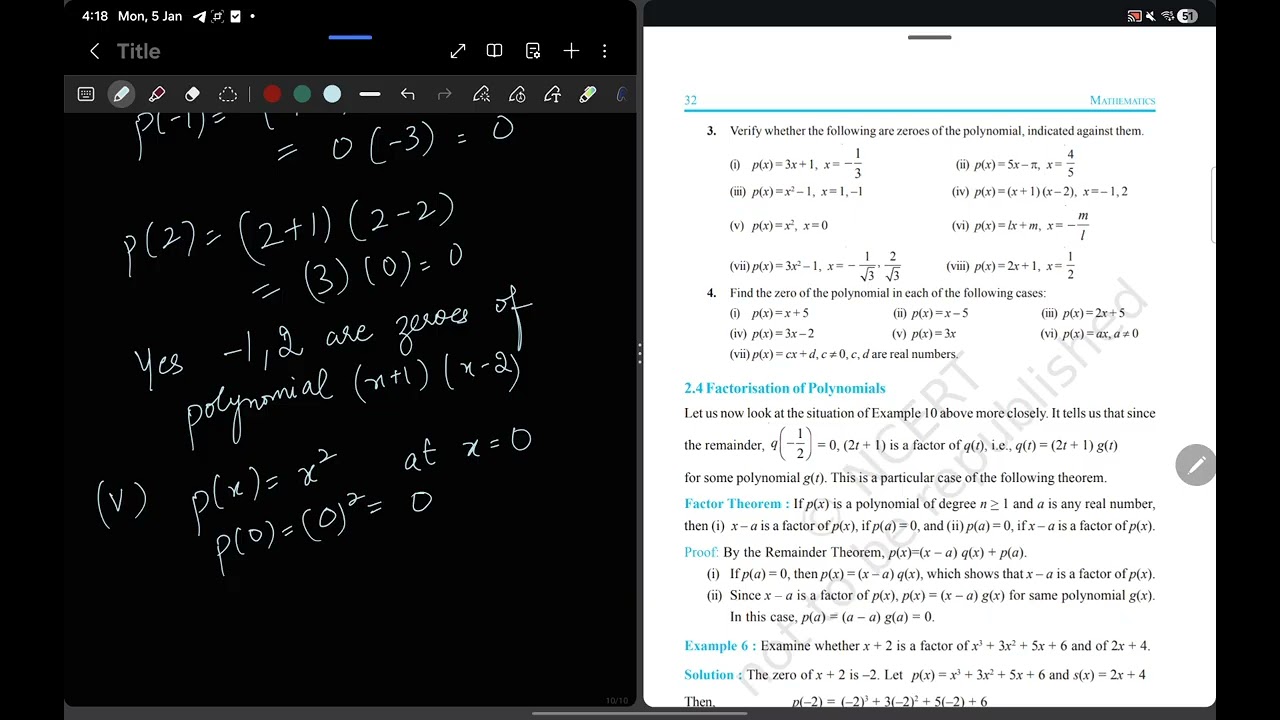 4:18 Mon, 5 Jan
51
Title
p(-1)=
= 0 (-3) = 0
p(2) = (2+1) (2-2)
= (3) (0) = 0
Yes -1, 2 are zeroes of
polynomial (x+1) (x-2)
(V) p(x) = x² at x = 0
p(0) = (0)² = 0
10/10
32 MATHEMATICS
3. Verify whether the following are zeroes of the polynomial, indicated against them.
(i) p(x) = 3x + 1, x = −1/3 (ii) p(x) = 5x – π, x = 4/5
(iii) p(x) = x² – 1, x = 1, –1 (iv) p(x) = (x + 1) (x – 2), x = – 1, 2
(v) p(x) = x², x = 0 (vi) p(x) = lx + m, x = −m/l
(vii) p(x) = 3x² – 1, x = −1/√3, 2/√3 (viii) p(x) = 2x + 1, x = 1/2
4. Find the zero of the polynomial in each of the following cases:
(i) p(x) = x + 5 (ii) p(x) = x – 5 (iii) p(x) = 2x + 5
(iv) p(x) = 3x – 2 (v) p(x) = 3x (vi) p(x) = ax, a ≠ 0
(vii) p(x) = cx + d, c ≠ 0, c, d are real numbers.
2.4 Factorisation of Polynomials
Let us now look at the situation of Example 10 above more closely. It tells us that since
the remainder, q(−1/2) = 0, (2t + 1) is a factor of q(t), i.e., q(t) = (2t + 1) g(t)
for some polynomial g(t). This is a particular case of the following theorem.
Factor Theorem : If p(x) is a polynomial of degree n ≥ 1 and a is any real number,
then (i) x – a is a factor of p(x), if p(a) = 0, and (ii) p(a) = 0, if x – a is a factor of p(x).
Proof: By the Remainder Theorem, p(x)=(x – a) q(x) + p(a).
(i) If p(a) = 0, then p(x) = (x – a) q(x), which shows that x – a is a factor of p(x).
(ii) Since x – a is a factor of p(x), p(x) = (x – a) g(x) for same polynomial g(x).
In this case, p(a) = (a – a) g(a) = 0.
Example 6 : Examine whether x + 2 is a factor of x³ + 3x² + 5x + 6 and of 2x + 4.
Solution : The zero of x + 2 is –2. Let p(x) = x³ + 3x² + 5x + 6 and s(x) = 2x + 4
Then, p(–2) = (–2)³ + 3(–2)² + 5(–2) + 6
© NCERT
not to be republished